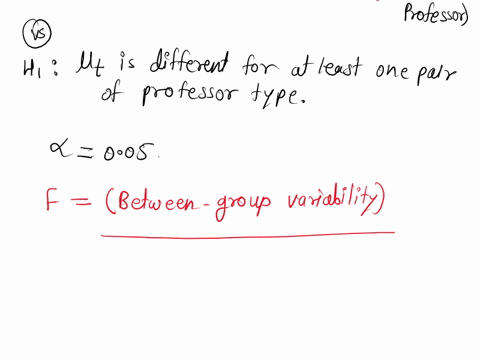 Professor)
Vs
H1: μt is different for at least one pair
of professor type.
α = 0.05.
F = (Between-group variability)